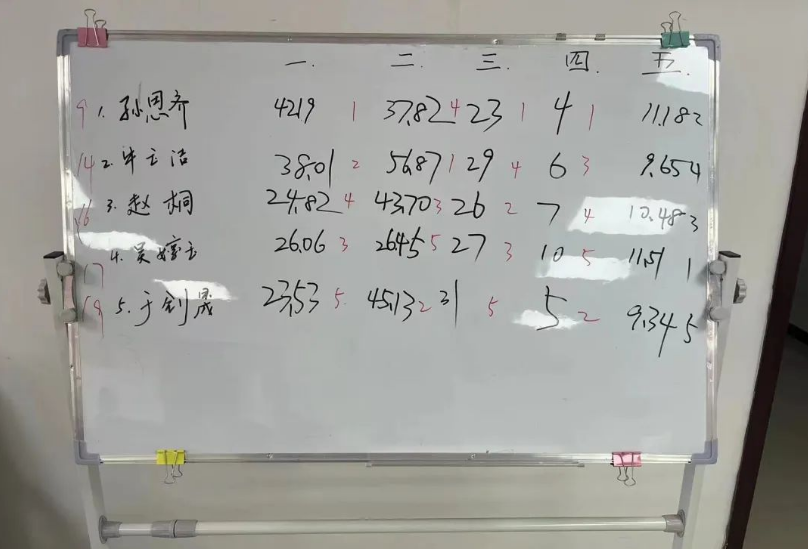 一. 二. 三. 四. 五.
9 1. 孙恩齐 42.19 1 37.82 4 23 1 4 1 11.18 2
14 2. 牛立洁 38.01 2 56.87 1 29 4 6 3 9.65 4
16 3. 赵桐 24.82 4 43.70 3 26 2 7 4 10.48 3
17 4. 吴 26.06 3 26.45 5 27 3 10 5 11.51 1
19 5. 于钊晟 23.53 5 45.13 2 31 5 5 2 9.34 5